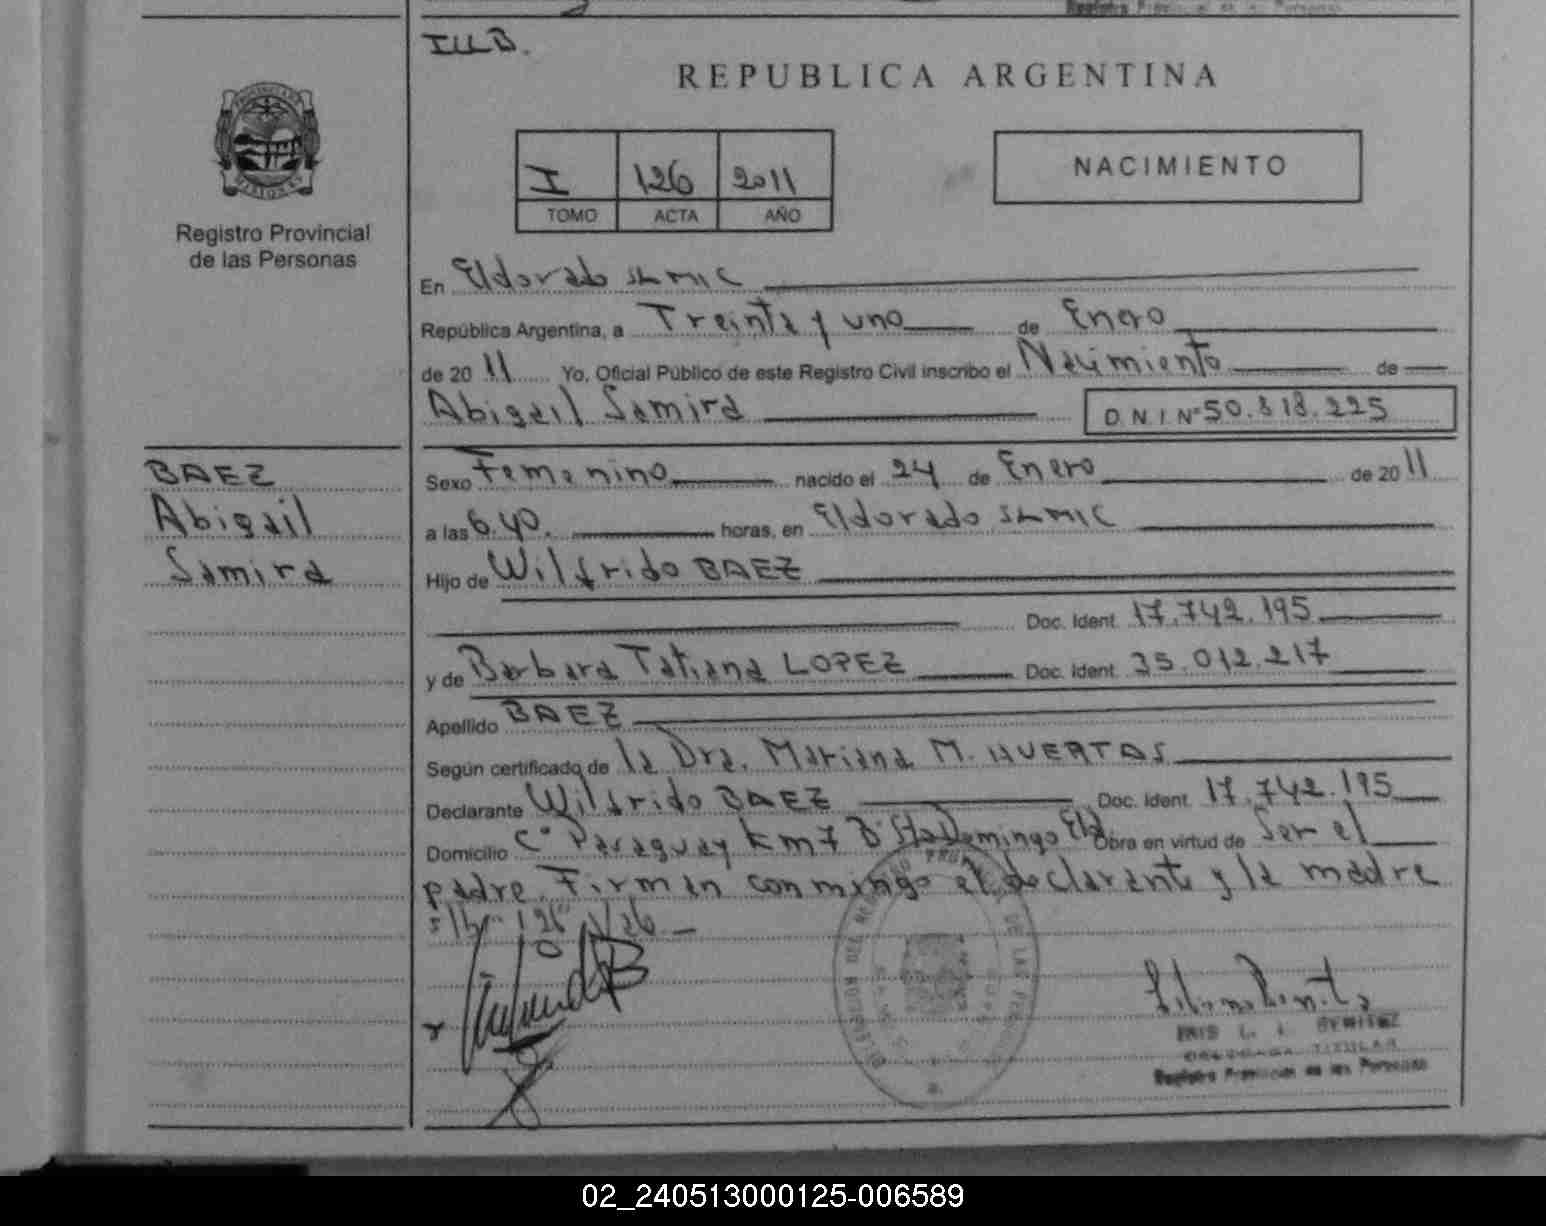 Registro Provincial de las Personas
ILLB.
REPUBLICA ARGENTINA
PROVINCIA DE
MISIONES
Registro Provincial
de las Personas
I 126 2011
TOMO ACTA AÑO
NACIMIENTO
En Eldorado SLMIC
República Argentina, a Treinta y uno de Enero
de 2011 Yo, Oficial Público de este Registro Civil inscribo el Nacimiento de
Abigail Samira D.N.I. Nº 50.818.225
BAEZ
Abigail
Samira
Sexo Femenino nacido el 24 de Enero de 2011
a las 6.40. horas, en Eldorado SLMIC
Hijo de Wilfrido BAEZ
Doc. Ident. 17.742.195
y de Barbara Tatiana LOPEZ Doc. Ident. 35.012.217
Apellido BAEZ
Según certificado de la Dra. Mariana M. HUERTAS
Declarante Wilfrido BAEZ Doc. Ident. 17.742.195
Domicilio Cº Paraguay Km 7 Bº Sto Domingo Eld. Obra en virtud de Ser el
padre. Firman conmingo el declarante y la madre
126
L. I. BENITEZ
DELEGADA TITULAR
Registro Provincial de las Personas
02_240513000125-006589